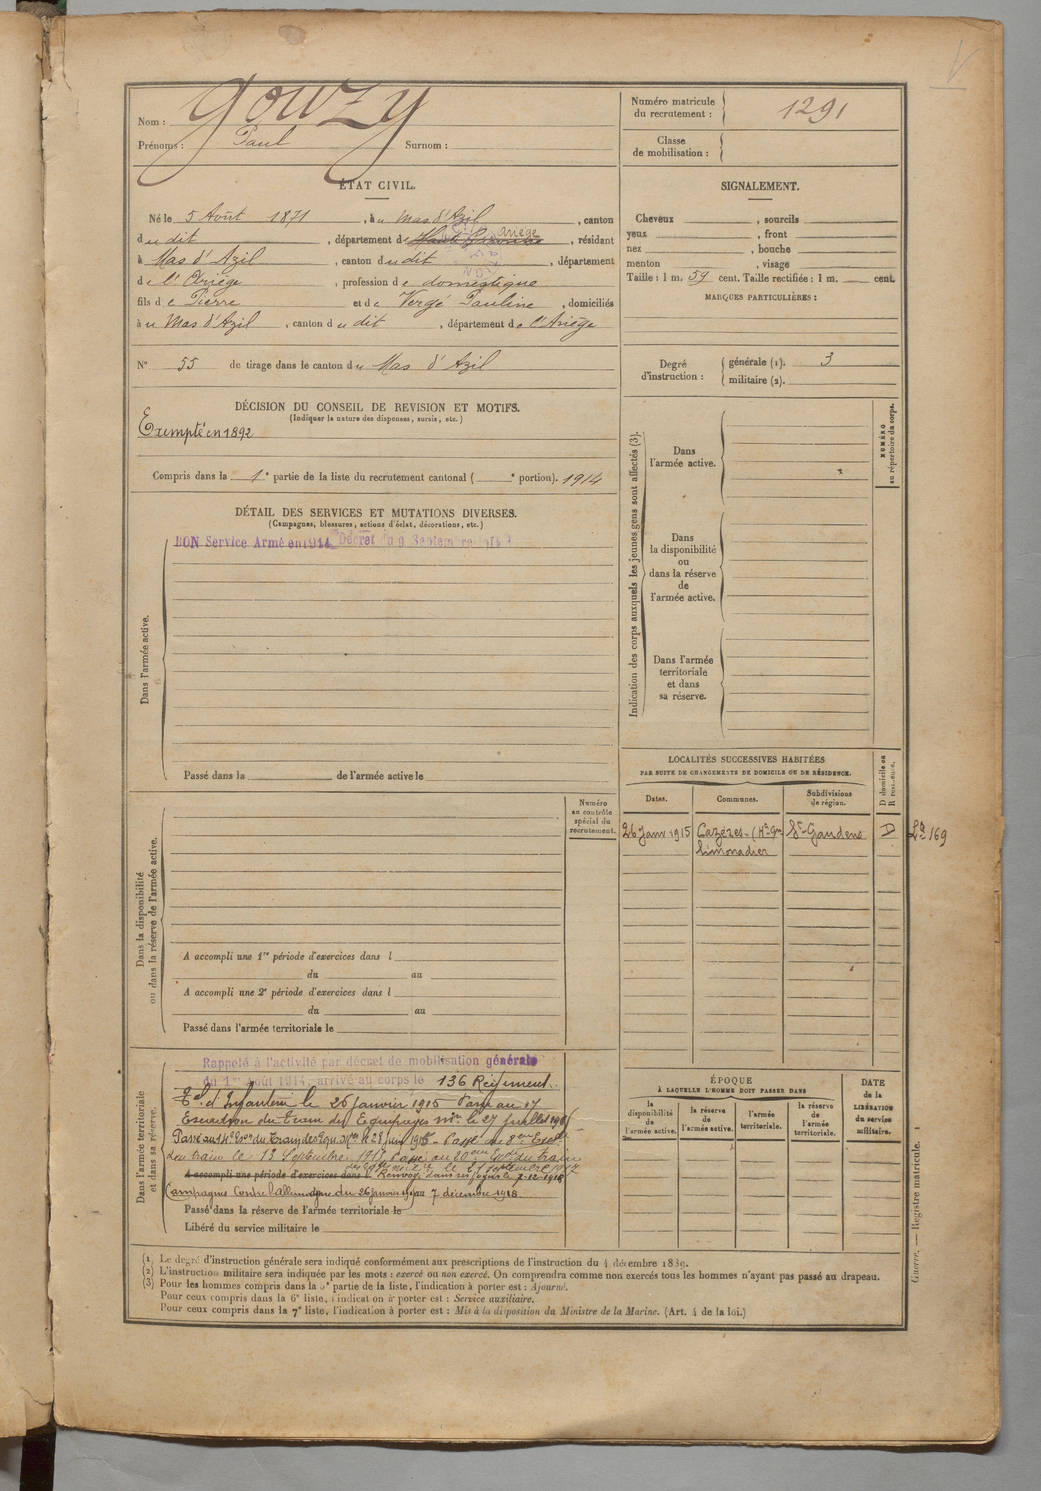 Nom : Gouzy
Prénoms : Paul Surnom :
Numéro matricule du recrutement : 1291
Classe de mobilisation :
ÉTAT CIVIL.
Né le 5 Août 1871, à u Mas d'Azil, canton
du dit, département de Haute Garonne Ariège, résidant
à Mas d'Azil, canton du dit, département
de l'Ariège, profession de domestique
fils de Pierre et de Vergé Pauline, domiciliés
à u Mas d'Azil, canton du dit, département de l'Ariège
N° 55 de tirage dans le canton du Mas d'Azil
SIGNALEMENT.
Cheveux , sourcils
yeux , front
nez , bouche
menton , visage
Taille : 1 m. 59 cent. Taille rectifiée : 1 m. cent.
MARQUES PARTICULIÈRES :
Degré d'instruction : générale (1). 3
militaire (2).
DÉCISION DU CONSEIL DE REVISION ET MOTIFS.
(Indiquer la nature des dispenses, sursis, etc.)
Exempté en 1892
Compris dans la 1e partie de la liste du recrutement cantonal ( e portion). 1914
DÉTAIL DES SERVICES ET MUTATIONS DIVERSES.
(Campagnes, blessures, actions d'éclat, décorations, etc.)
BON Service Armé en 1914 Décret du 9 Septembre 1914
Dans l'armée active.
Passé dans la de l'armée active le
Indication des corps auxquels les jeunes gens sont affectés (3).
NUMÉRO au répertoire du corps.
Dans l'armée active.
Dans la disponibilité ou dans la réserve de l'armée active.
Dans l'armée territoriale et dans sa réserve.
LOCALITÉS SUCCESSIVES HABITÉES
PAR SUITE DE CHANGEMENTS DE DOMICILE OU DE RÉSIDENCE.
D domicile ou R résidence.
Dates. Communes. Subdivisions de région.
26 Janv 1915 Cazères (Hte Gne St Gaudens D La 169
limonadier
Numéro au contrôle spécial du recrutement.
Dans la disponibilité ou dans la réserve de l'armée active.
A accompli une 1re période d'exercices dans l
du au
A accompli une 2e période d'exercices dans l
du au
Passé dans l'armée territoriale le
Dans l'armée territoriale et dans sa réserve.
Rappelé à l'activité par décret de mobilisation générale
du 1er août 1914, arrivé au corps le 136 Régiment
Tal d'Infanterie le 26 janvier 1915 Passé au 17
Escadron du Train des Equipages Mres le 27 Juillet
Passé au
du train le 13 Septembre 1917 Passé au 20eme Escon du train
des Eqges mil res le 21 septembre 1917
A accompli une période d'exercices dans l Renvoyé dans ses foyers le 7-12-1918
Campagne contre l'Allemagne du 26 janvier au 7 décembre 1918.
Passé dans la réserve de l'armée territoriale le
Libéré du service militaire le
ÉPOQUE
À LAQUELLE L'HOMME DOIT PASSER DANS
la disponibilité de l'armée active. la réserve de l'armée active. l'armée territoriale. la réserve de l'armée territoriale.
DATE de la LIBÉRATION du service militaire.
(1) Le degré d'instruction générale sera indiqué conformément aux prescriptions de l'instruction du 4 décembre 1889.
(2) L'instruction militaire sera indiquée par les mots : exercé ou non exercé. On comprendra comme non exercés tous les hommes n'ayant pas passé au drapeau.
(3) Pour les hommes compris dans la 5e partie de la liste, l'indication à porter est : Ajourné.
Pour ceux compris dans la 6e liste, l'indication à porter est : Service auxiliaire.
Pour ceux compris dans la 7e liste, l'indication à porter est : Mis à la disposition du Ministre de la Marine. (Art. 4 de la loi.)
Guerre. — Registre matricule. 1